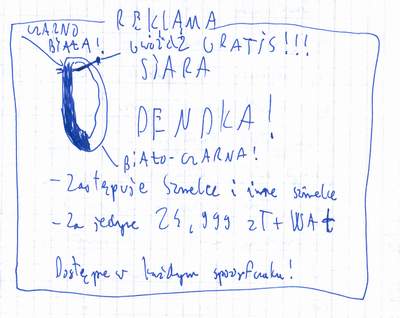 REKLAMA
CZARNO
BIAŁA!
GWÓŹDŹ GRATIS!!!
SIARA
DENDKA!
BIAŁO-CZARNA!
- Zastępuje sznelce i inne sznelce
- Za jedyne 24,999 zT + WAt
Dostępne w każdym sposyfunku!